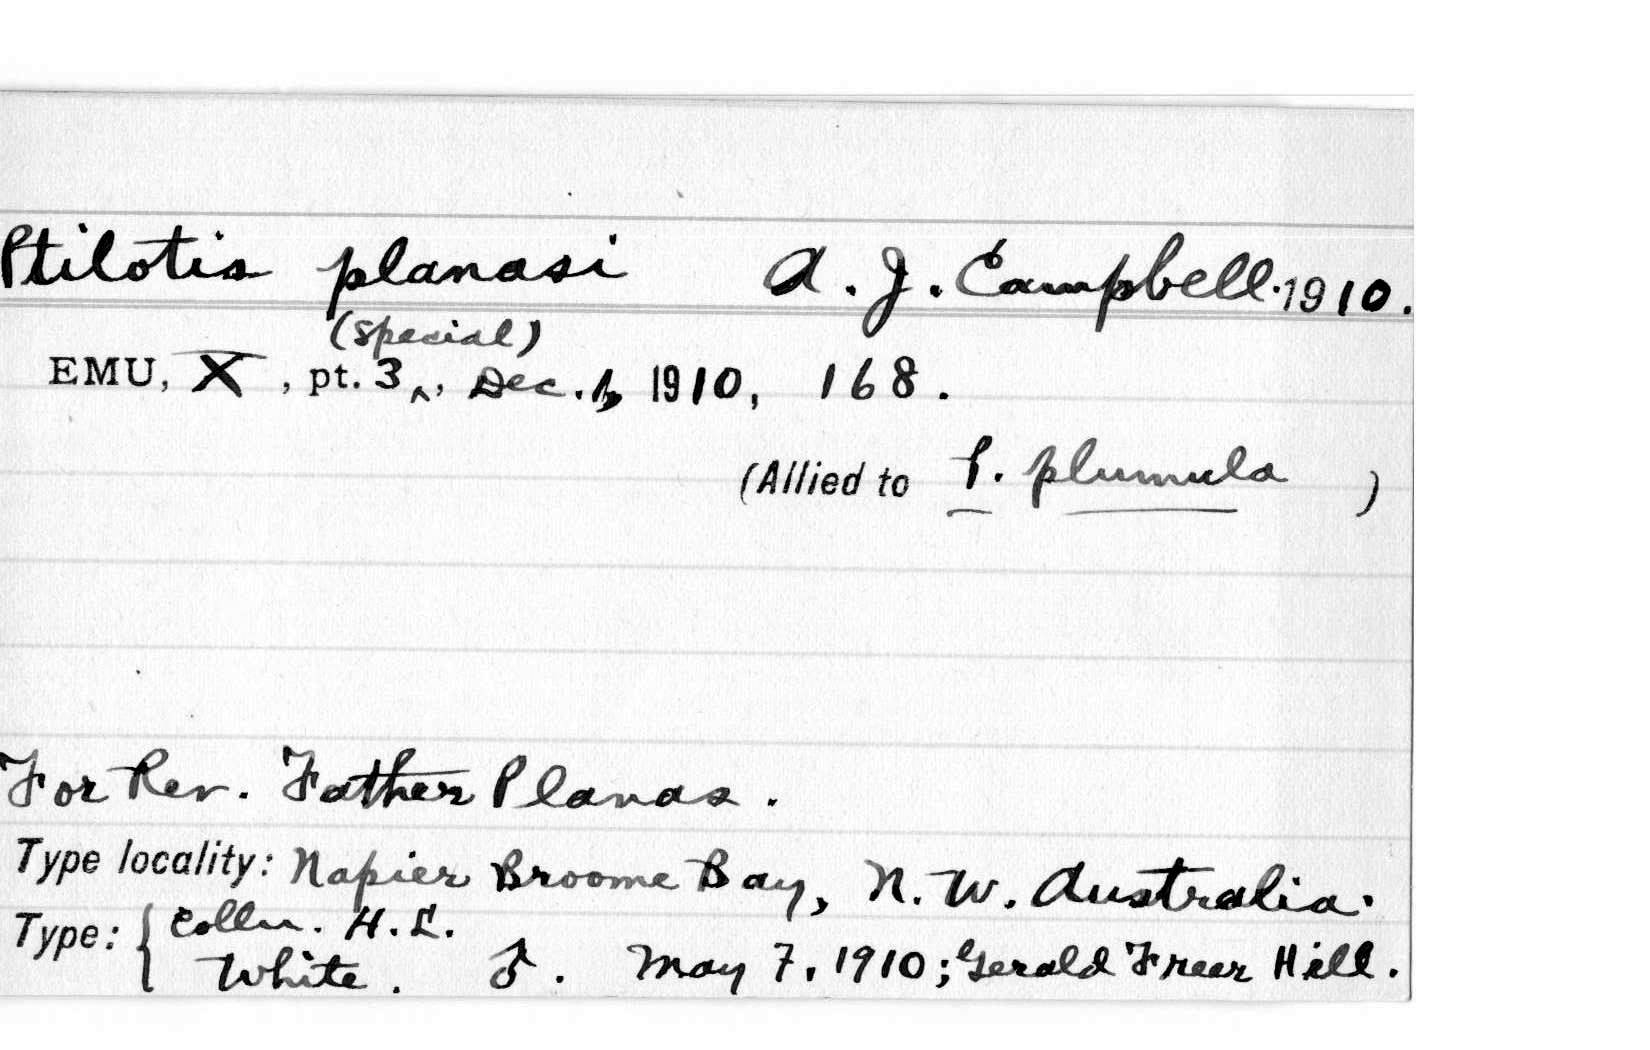 Ptilotis planasi A. J. Campbell. 1910.
(special)
EMU, X, pt. 3‸, Dec. 1, 1910, 168.
(Allied to P. plumula )
For Rev. Father Planas.
Type locality: Napier Broome Bay, N. W. Australia.
Type: { Colln. H. L.
White. ♂. May 7, 1910; Gerald Freer Hill.